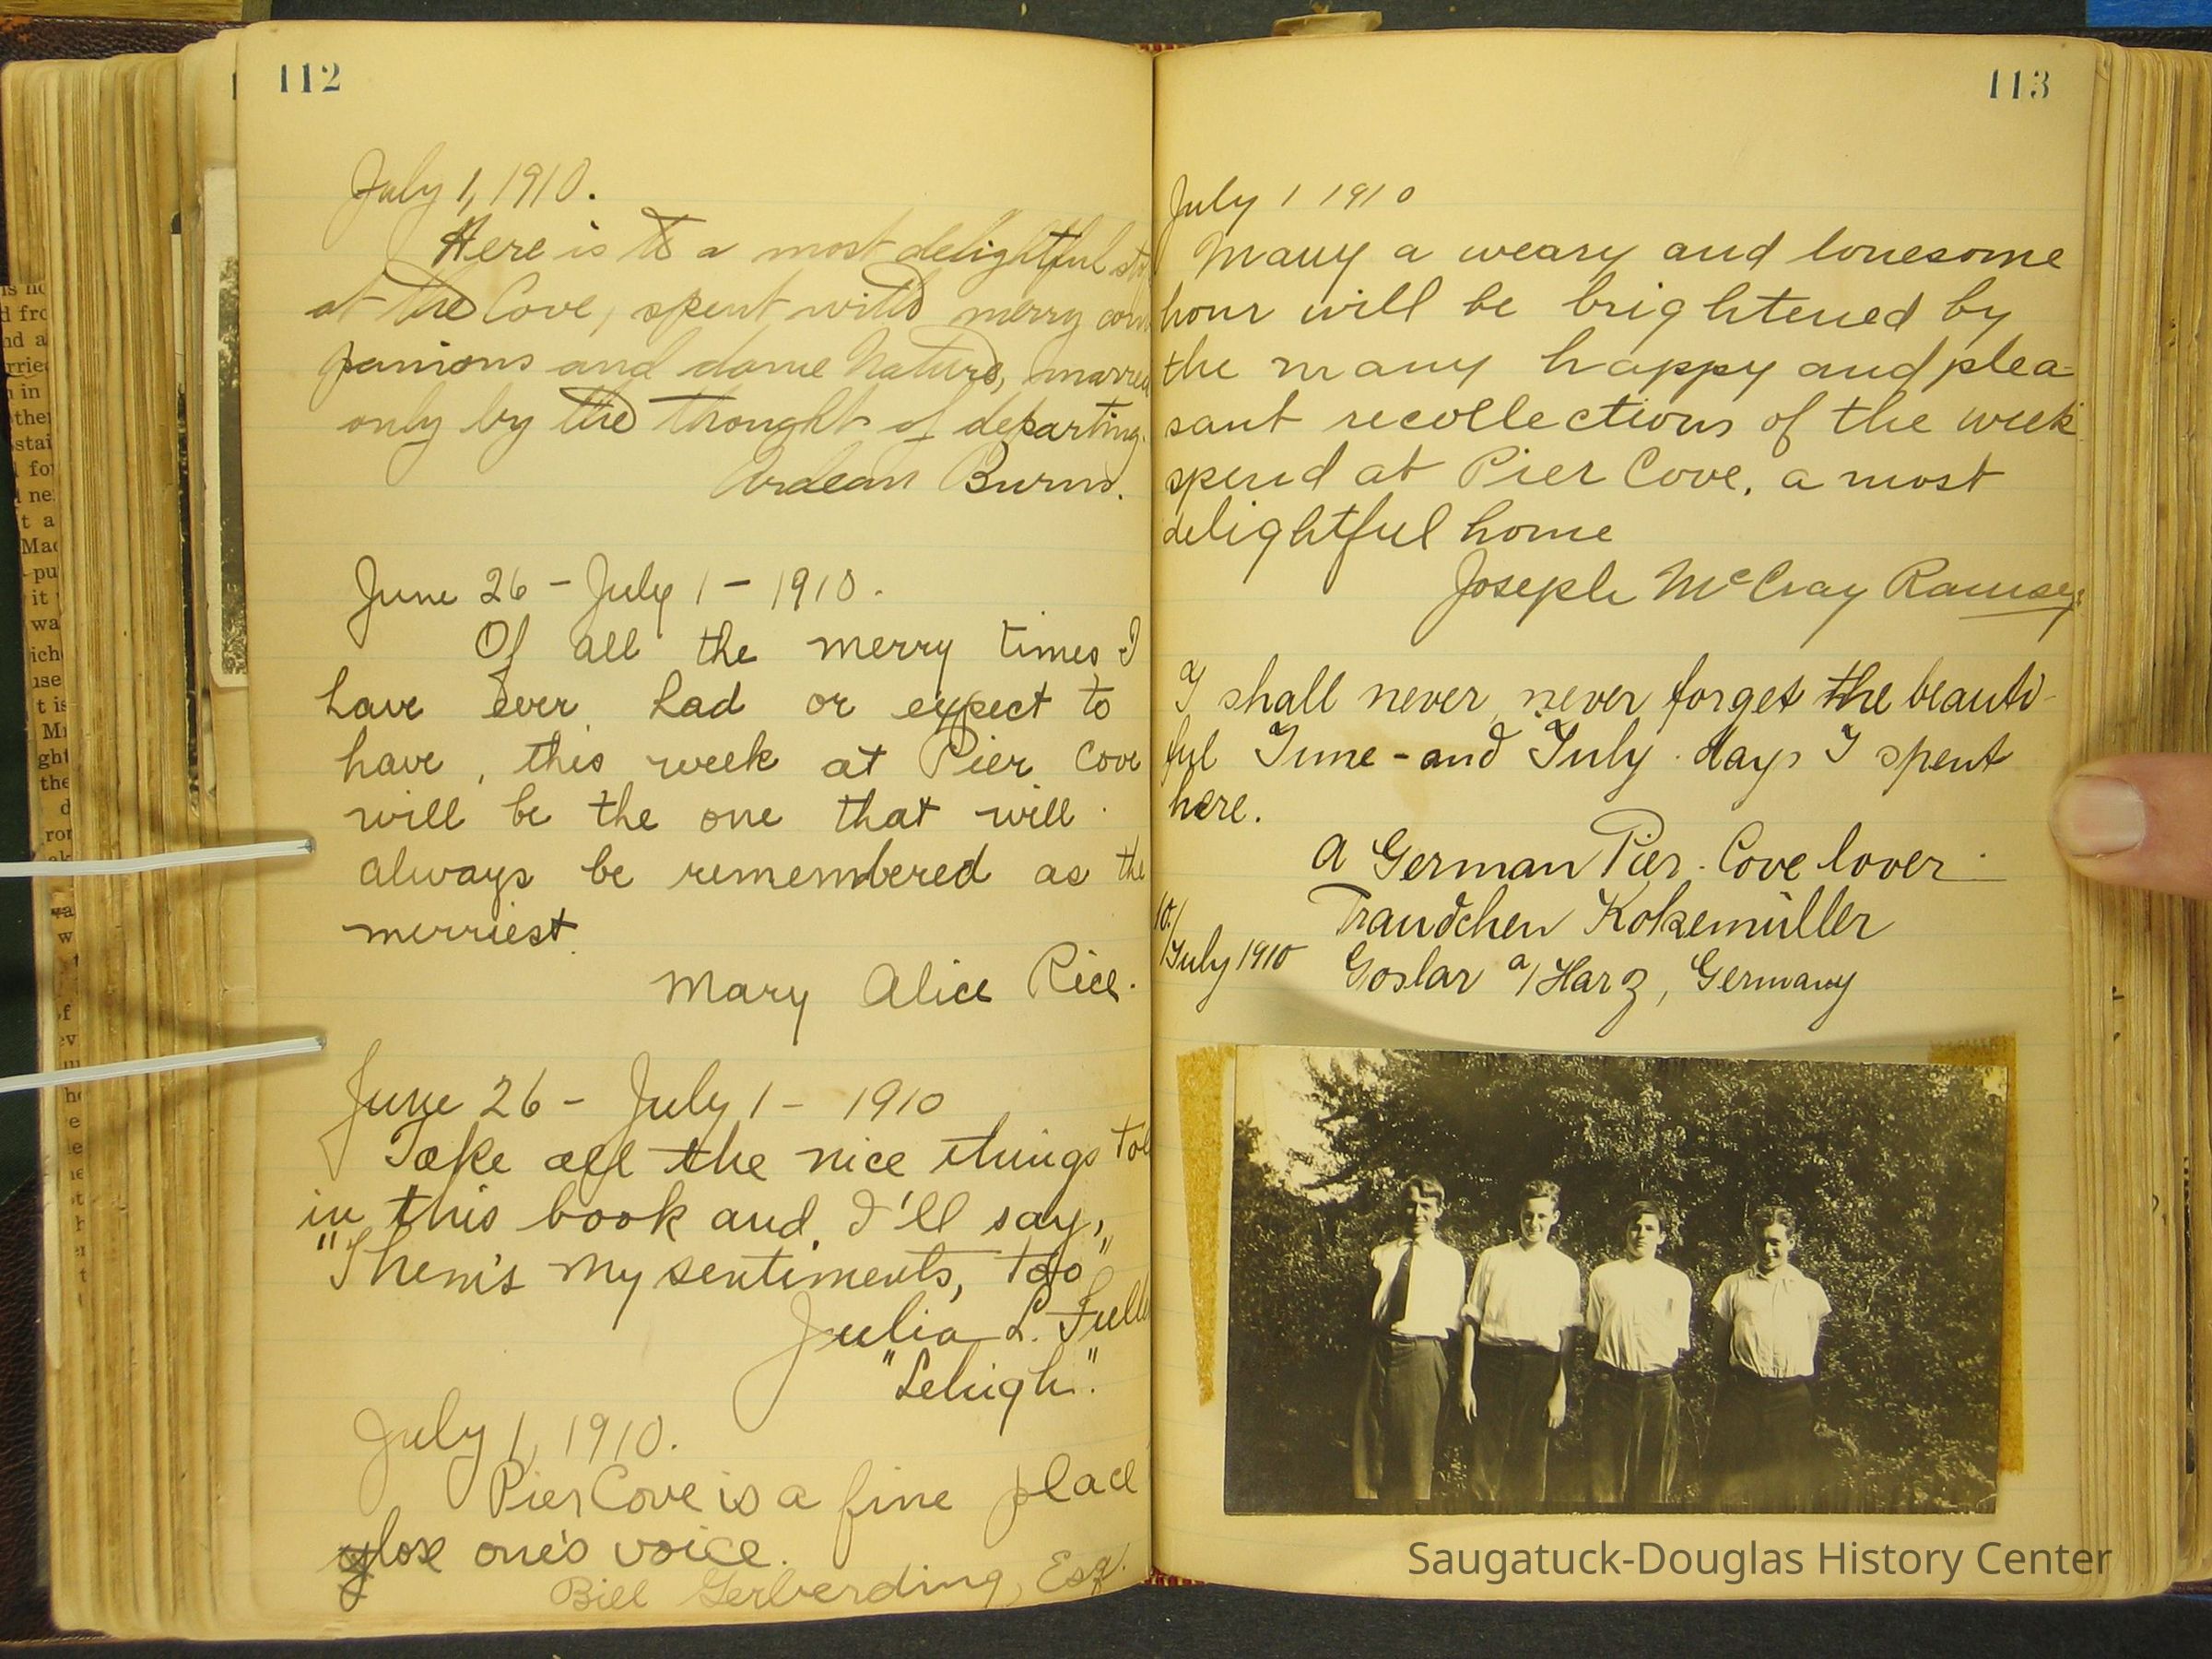 112
July 1, 1910.
Here is to a most delightful
at the Cove, spent with merry com
panions and dame Nature, marred
only by the thought of departing.
Ardean Burns.
June 26 - July 1 - 1910.
Of all the merry times I
have ever had or expect to
have, this week at Pier Cove
will be the one that will
always be remembered as the
merriest.
Mary Alice Rice.
June 26 - July 1 - 1910
Take all the nice things
in this book and I'll say,
"Them's my sentiments, too"
Julia L.
"Lehigh".
July 1, 1910.
Pier Cove is a fine place
lose one's voice.
Bill Gerberding, Esq.
113
July 1 1910
Many a weary and lonesome
hour will be brightened by
the many happy and plea-
sant recollections of the week
spend at Pier Cove, a most
delightful home
Joseph McCray Ramsey.
I shall never, never forget the beauti-
ful June - and July days I spent
here.
A German Pier-Cove lover
Traudchen Kokemüller
July 1910 Goslar a/Harz, Germany
Saugatuck-Douglas History Center